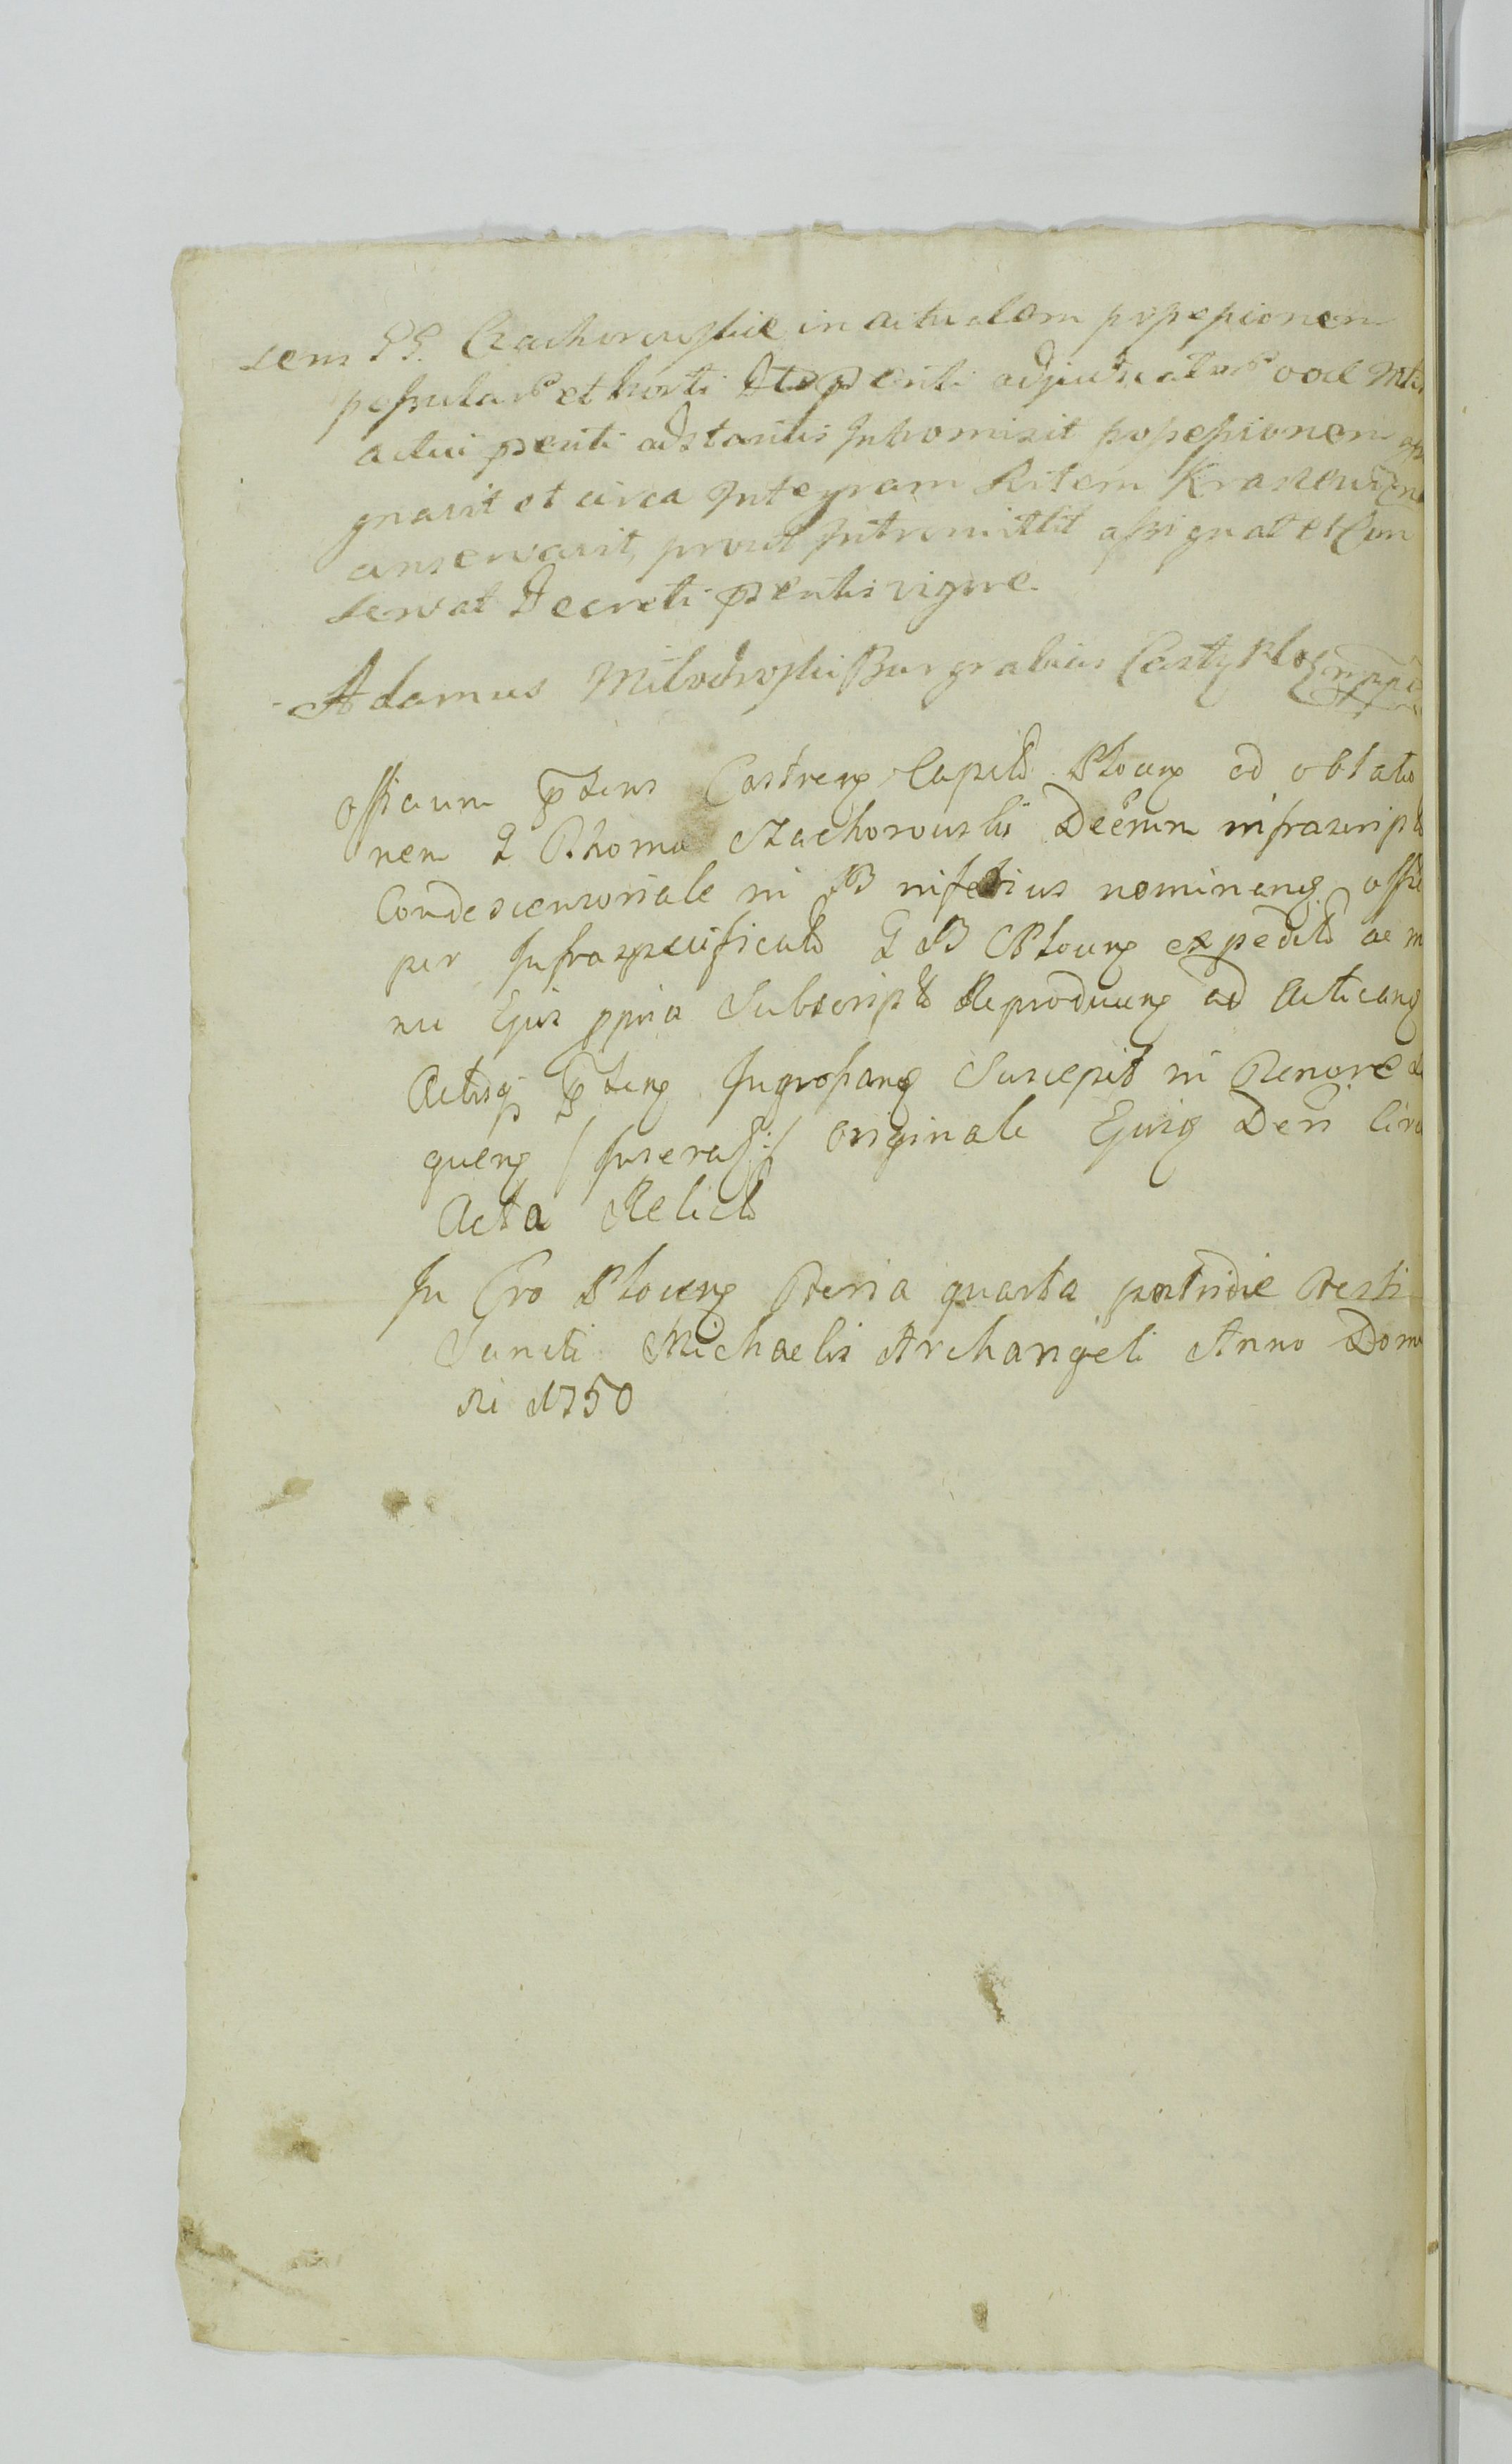 sens GG. Czachorowskie in actualem possessionem
possular et horti Dto pnti adjudicator ooe
actui pnti adstantis Intromisit possessionem
gnavit et circa Integram Sitem Kraszewic
conservavit, prout Intromittit assignat et Con
servat Decreti pntis vigore.
Adamus Milodrowski Burgrabius Castr Ploc mpp
Officium pstens Castren Capitl Plocen ad oblatio
nem G Thoma Czachorowski Decrum infrascript
Condescensoriale in B inferius nominan offi
per Infraspecificatd G B Plocen expeditd ac m
nu Ejus ppria Subscriptd Reproducen ad Acticand
Actisq psten Ingrossand Suscepit in Tenore
quens /Inserat:/ originale Ejusq Decri Circa
Acta Relictd
In Cro Plocen Feria quarta postridie Festi
Sancti Michaelis Archangeli Anno Domi
ni 1750